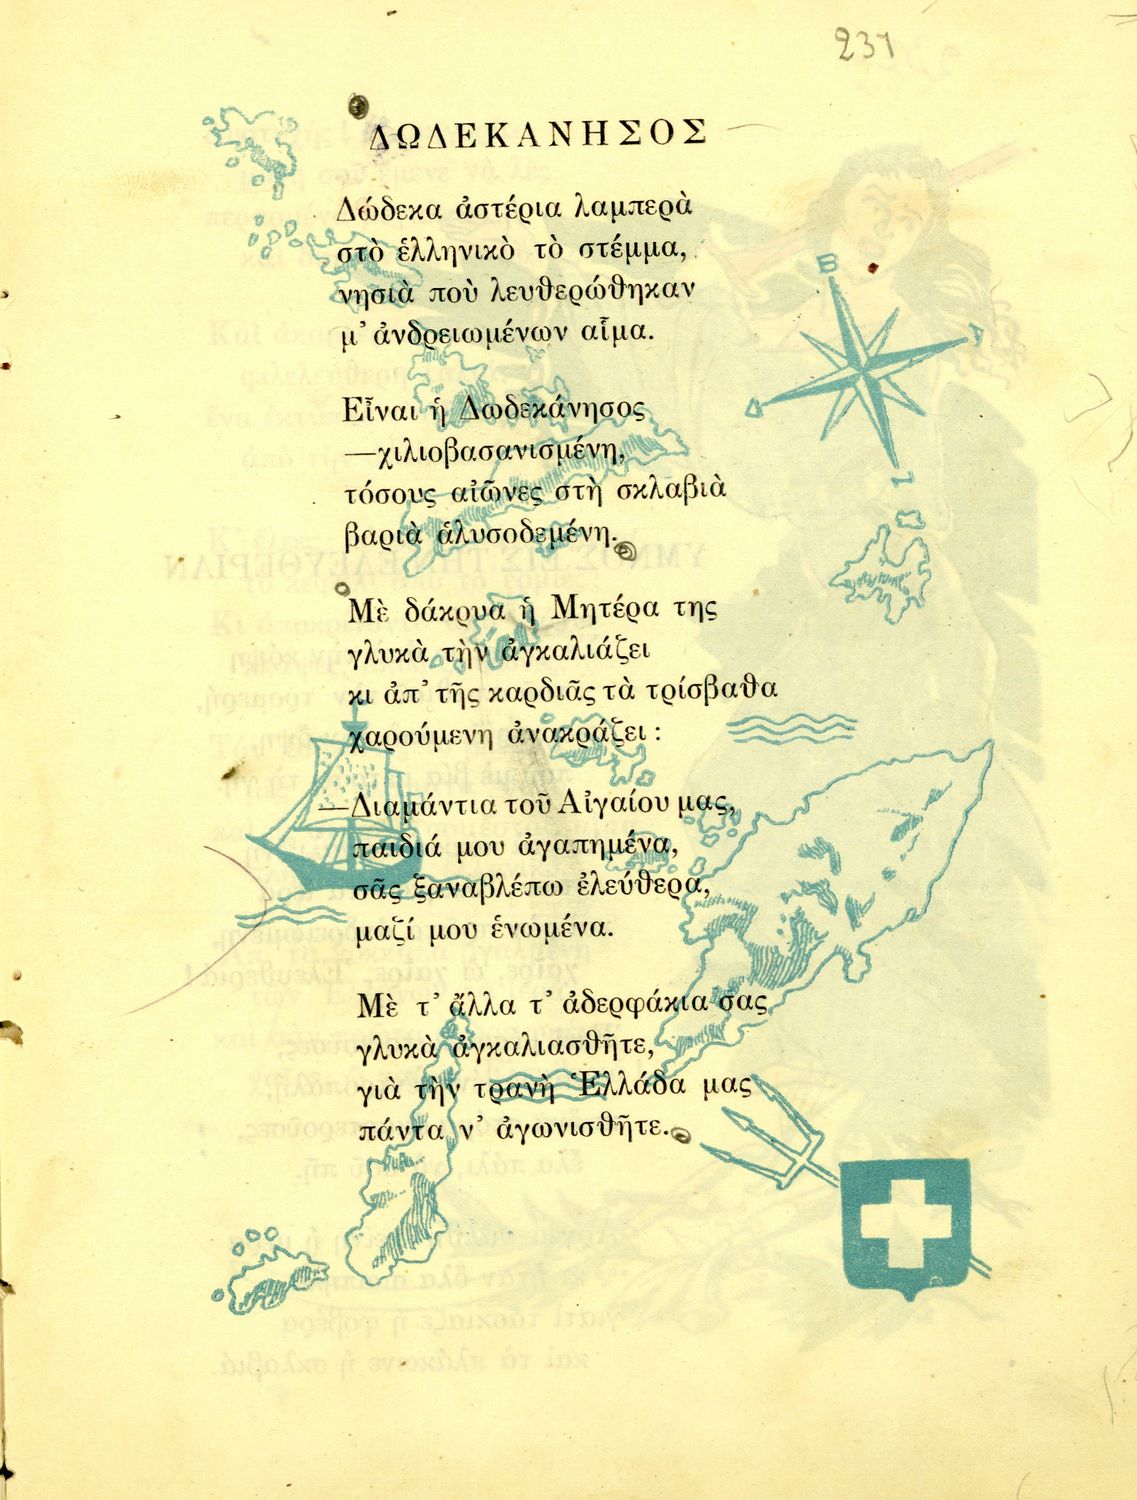 231
ΔΩΔΕΚΑΝΗΣΟΣ
Δώδεκα ἀστέρια λαμπερὰ
στὸ ἑλληνικὸ τὸ στέμμα,
νησιὰ ποὺ λευθερώθηκαν
μ᾽ ἀνδρειωμένων αἷμα.
Εἶναι ἡ Δωδεκάνησος
—χιλιοβασανισμένη,
τόσους αἰῶνες στὴ σκλαβιὰ
βαριὰ ἁλυσοδεμένη.
Μὲ δάκρυα ἡ Μητέρα της
γλυκὰ τὴν ἀγκαλιάζει
κι ἀπ᾽ τῆς καρδιᾶς τὰ τρίσβαθα
χαρούμενη ἀνακράζει :
—Διαμάντια τοῦ Αἰγαίου μας,
παιδιά μου ἀγαπημένα,
σᾶς ξαναβλέπω ἐλεύθερα,
μαζί μου ἑνωμένα.
Μὲ τ᾽ ἄλλα τ᾽ ἀδερφάκια σας
γλυκὰ ἀγκαλιασθῆτε,
γιὰ τὴν τρανὴ Ἑλλάδα μας
πάντα ν᾽ ἀγωνισθῆτε.
Β
Α
Δ